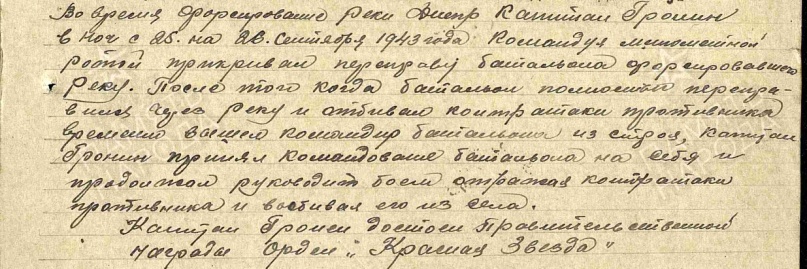 Во время форсирование реки Днепр Капитан Гронин
в ноч с 25. на 26. Сентября 1943 года Командуя минометной
ротой прикривал переправу батальона форсировавшего
реку. После того когда батальон полностю перепра-
вился через реку и отбивал контратаки противника
временно вышел командир батальона из строя, капитан
Гронин принял командование батальона на себя и
продолжал руководит боем отражая контратаки
противника и выбивая его из села.
Капитан Гронин достоен Правительственной
награды Орден „Красная Звезда"